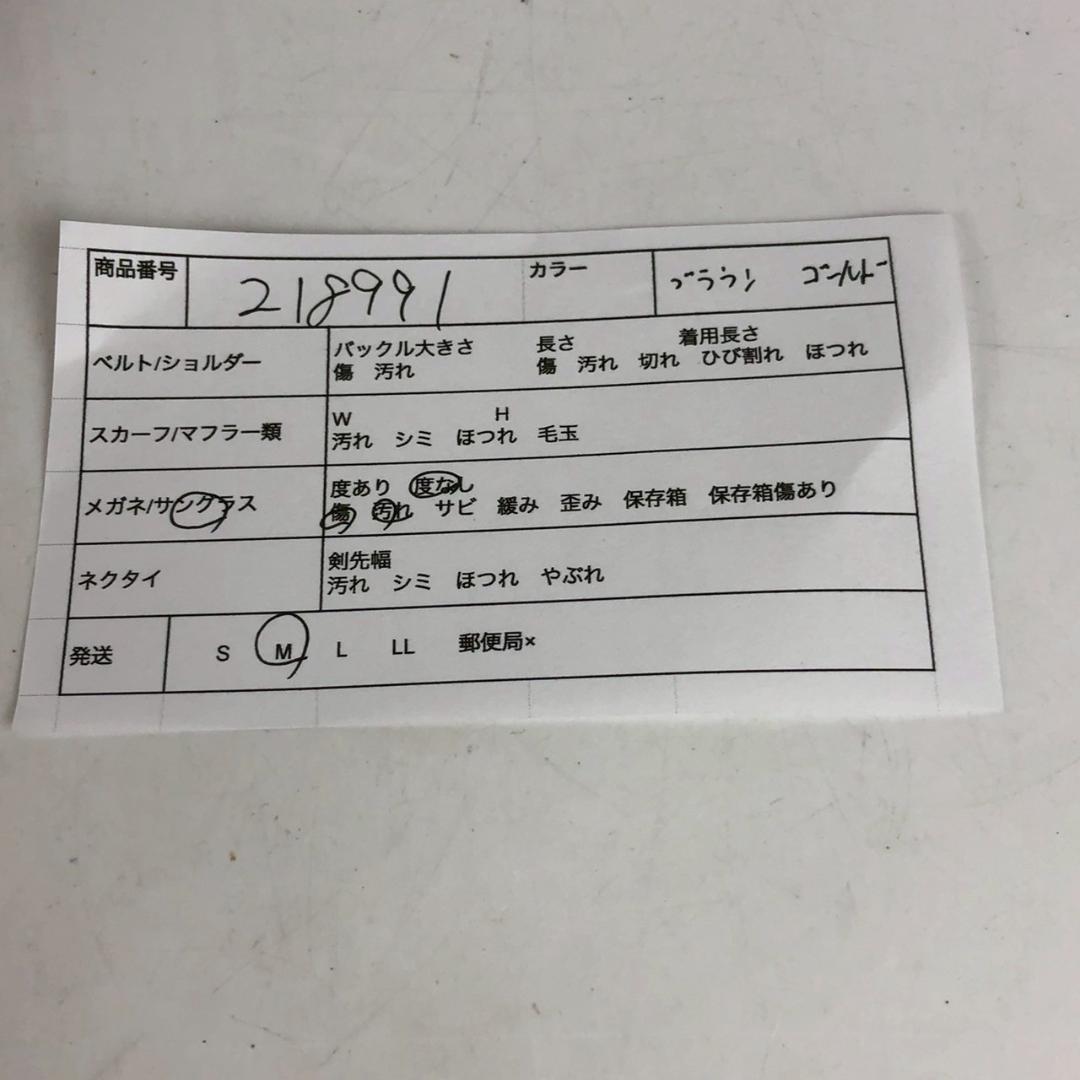 商品番号 218991 カラー ブラウン ゴールド
ベルト/ショルダー
バックル大きさ 長さ 着用長さ
傷 汚れ 傷 汚れ 切れ ひび割れ ほつれ
スカーフ/マフラー類
W H
汚れ シミ ほつれ 毛玉
メガネ/サングラス
度あり 度なし
傷 汚れ サビ 緩み 歪み 保存箱 保存箱傷あり
ネクタイ
剣先幅
汚れ シミ ほつれ やぶれ
発送 S M L LL 郵便局×